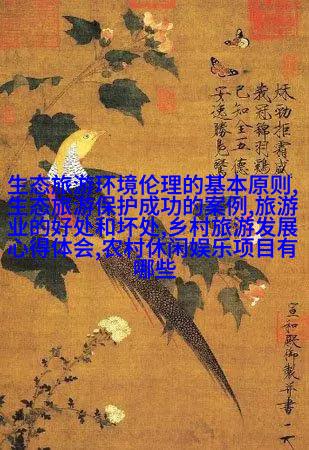 秋勁拒霜盛
峩冠錦羽雞
已知全五德
安逸勝鳧鷖
生态旅游环境伦理的基本原则,
生态旅游保护成功的案例,旅游
业的好处和坏处,乡村旅游发展
心得体会,农村休闲娱乐项目有
哪些
宣和殿御製并書